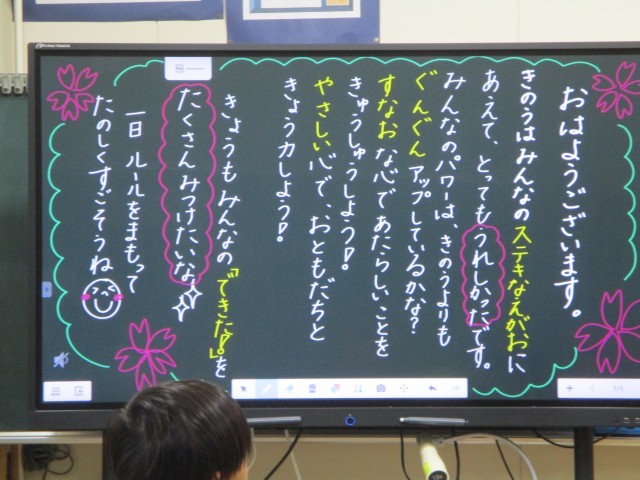 おはようございます。
きのうはみんなのステキなえがおに
あえて、とってもうれしかったです。
みんなのパワーは、きのうよりも
ぐんぐんアップしているかな?
すなおな心であたらしいことを
きゅうしゅうしよう!。
やさしい心で、おともだちと
きょう力しよう!。
きょうもみんなの『できた!。』を
たくさんみつけたいな
一日ルールをまもって
たのしくすごそうね
1/1